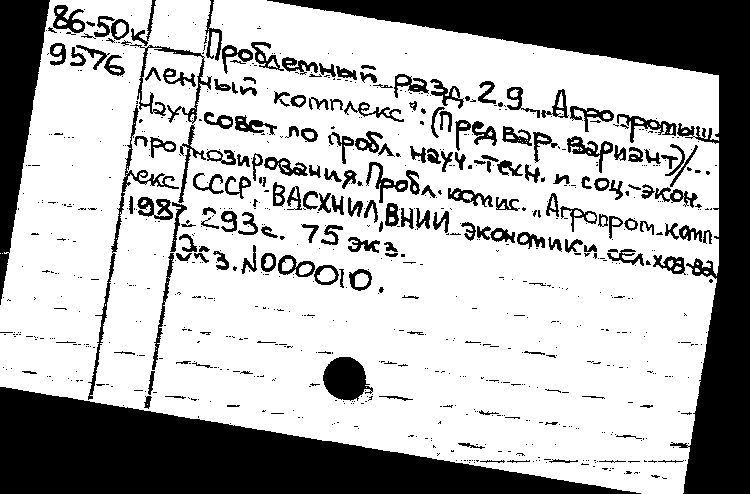 86-50к
9576
Проблемный разд. 2.9 „Агропромыш-
ленный комплекс": (Предвар. вариант)/...
Науч. совет по пробл. науч.-техн. и соц.-экон.
прогнозирования. Пробл. комис. „Агропром. комп-
лекс СССР", ВАСХНИЛ, ВНИИ экономики сел. хоз-ва.
1987. 293с. 75 экз.
Экз. N000010.